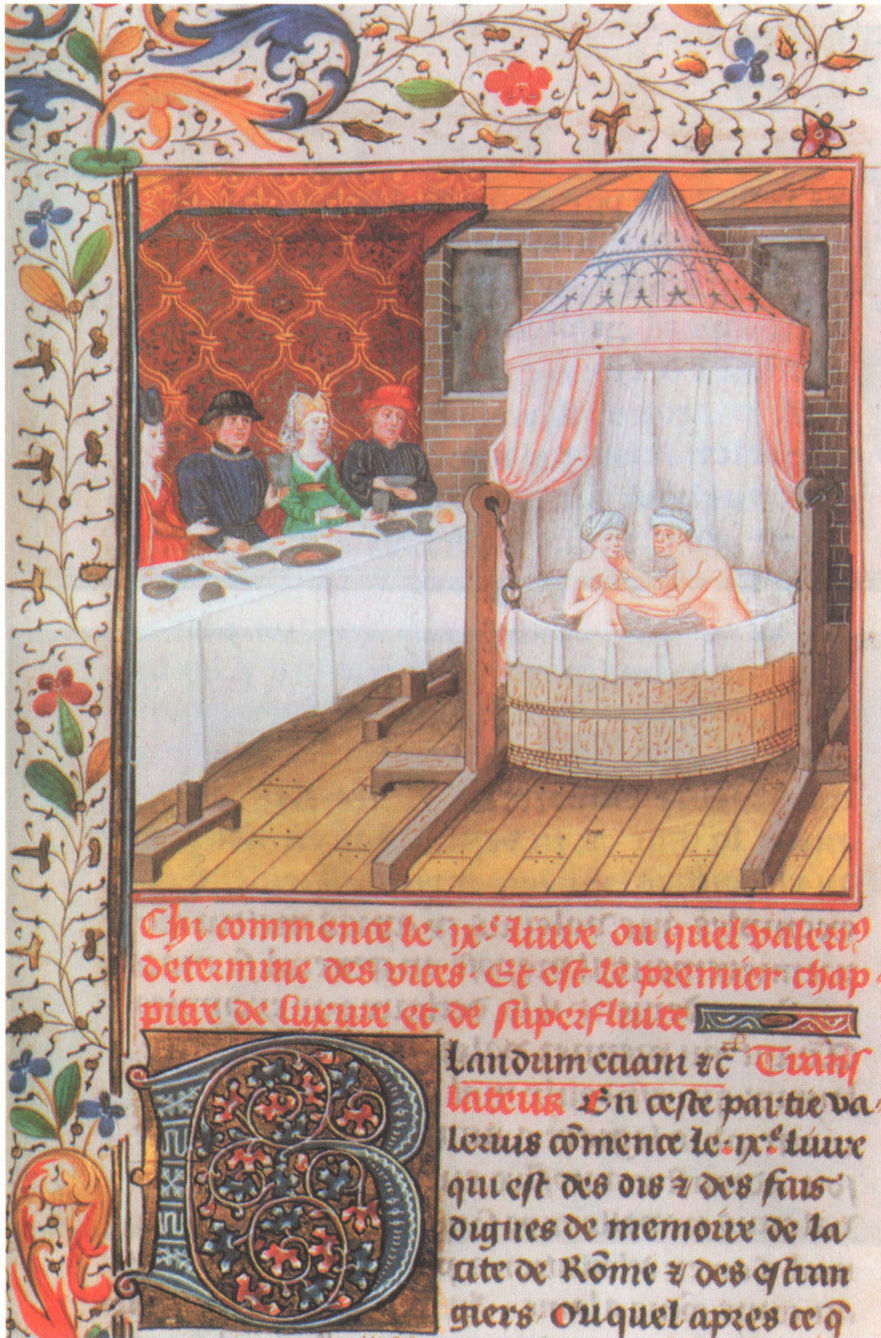 Chi commence le .ix.e liure ou quel valeri9
determine des vices. Et est le premier chap-
pitre de luxure et de superfluite
Blandum eciam ⁊c̃ Trans
lateur En ceste partie va-
lerius cõmence le .ix.e liure
qui est des dis ⁊ des fais
dignes de memoire de la
cite de Rõme ⁊ des estran
giers Ou quel apres ce q̃